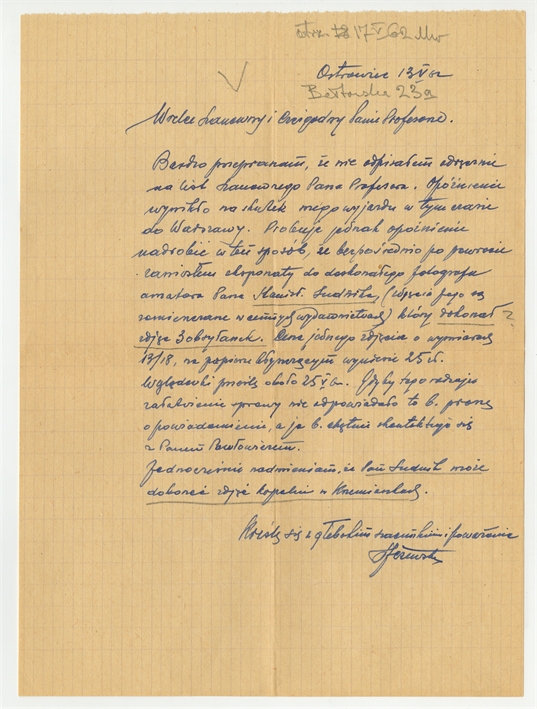 otrz. 17 V 62 Mw
Ostrowiec 13 V 62
Bałtowska 23a
Wielce Szanowny i Czcigodny Panie Profesorze.
Bardzo przepraszam, że nie odpisałem odręcznie
na list Szanownego Pana Profesora. Opóźnienie
wynikło na skutek mego wyjazdu w tym czasie
do Warszawy. Próbuję jednak opóźnienie
nadrobić w ten sposób, że bezpośrednio po powrocie
zaniosłem eksponaty do doskonałego fotografa
amatora Pana Stanisł. Sudnika, (zdjęcia jego są
zamieszczane w wydawnictwach) który dokonał ?
zdjęć Cena jednego zdjęcia o wymiarach
13/18, na papierze błyszczącym wyniesie 25 zł.
Wglądówki prześlę około 25 V b.r. Gdyby tego rodzaju
załatwienie sprawy nie odpowiadało to b. proszę
o powiadomienie, a ja b. chętnie skontaktuję się
z Panem Pawłowiczem.
Jednocześnie nadmieniam, że Pan Sudnik może
dokonać zdjęć kopalni w Krzemionkach.
Kreślę się z głębokim szacunkiem i poważaniem